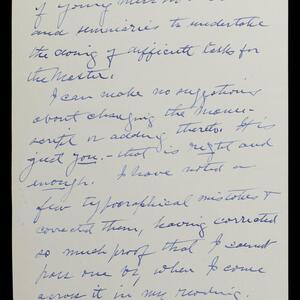 of young men in
and seminaries to undertake
the doing of difficult tasks for
the Master.
I can make no suggestions
about changing the Manu-
script or adding thereto. It is
just you. - that is right and
enough. I have noted a
few typographical mistakes &
corrected them, having corrected
so much proof that I cannot
pass one by when I come
across it in my reading.